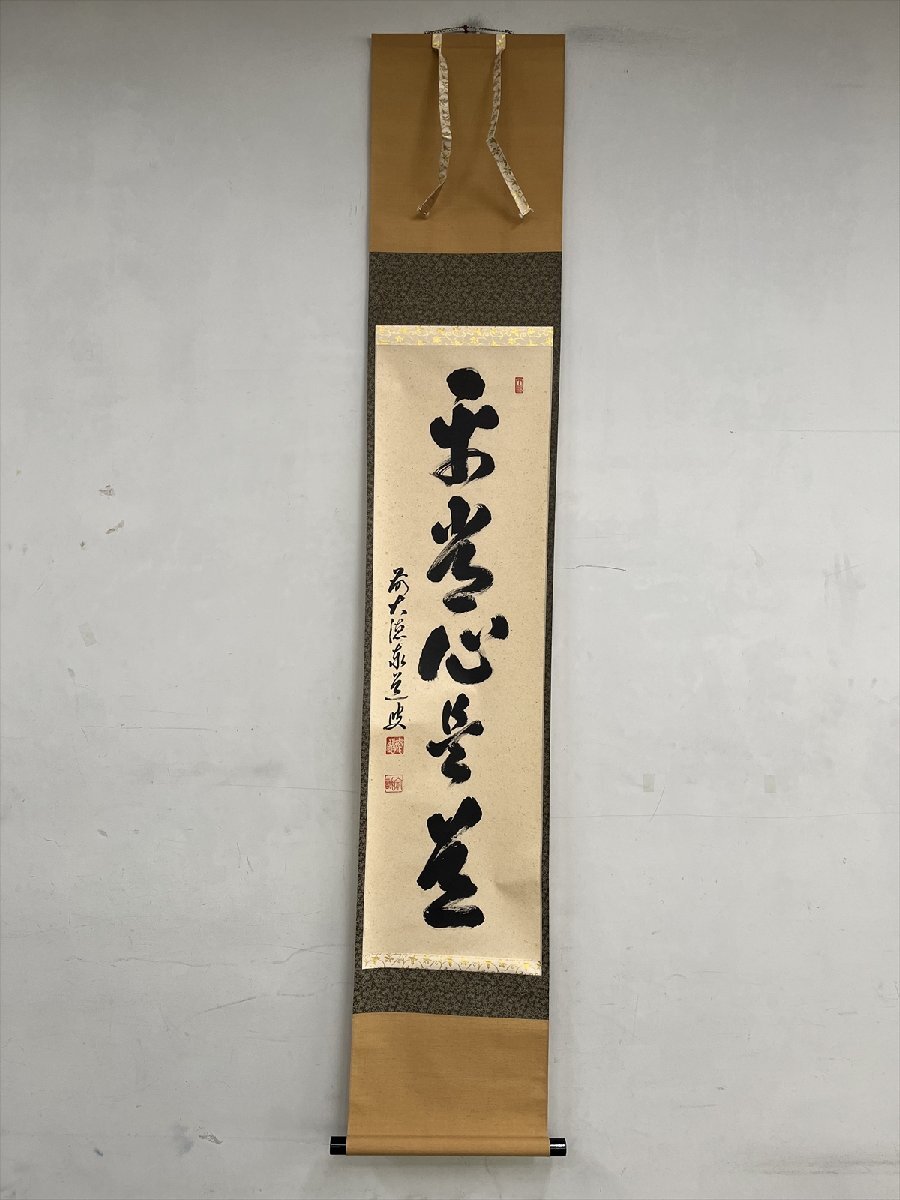 平常心是道
前大徳泰道